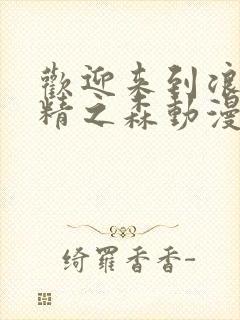 歡迎来到浪
精之森動漫
绮羅香香-